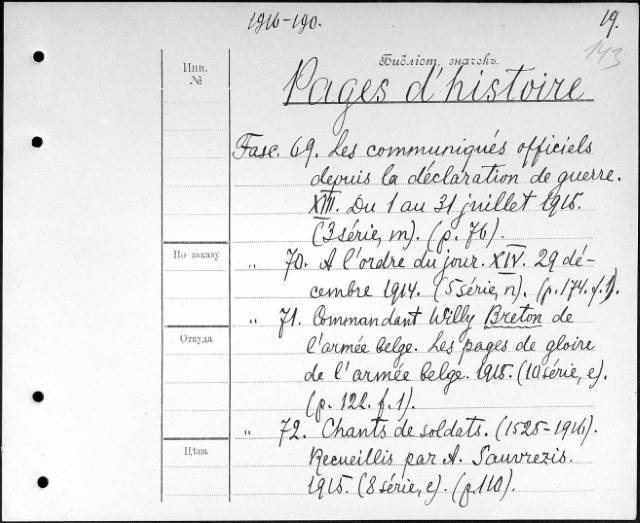 1916-190.
19.
143
Инв.
№
Библіот. значекъ.
Pages d'histoire
Fasc. 69. Les communiqués officiels
depuis la déclaration de guerre.
XIII. Du 1 au 31 juillet 1915.
(3 série, m). (p. 76).
" 70. A l'ordre du jour. XIV. 29 dé-
По заказу
cembre 1914. (5 série, n). (p. 174. f. 1).
" 71. Commandant Willy Breton de
Откуда
l'armée belge. Les pages de gloire
de l'armée belge. 1915. (10 série, e).
(p. 122. f. 1).
" 72. Chants de soldats. (1525-1916).
Цѣна
Recueillis par A. Sauvrezis.
1915. (8 série, e). (p. 110).